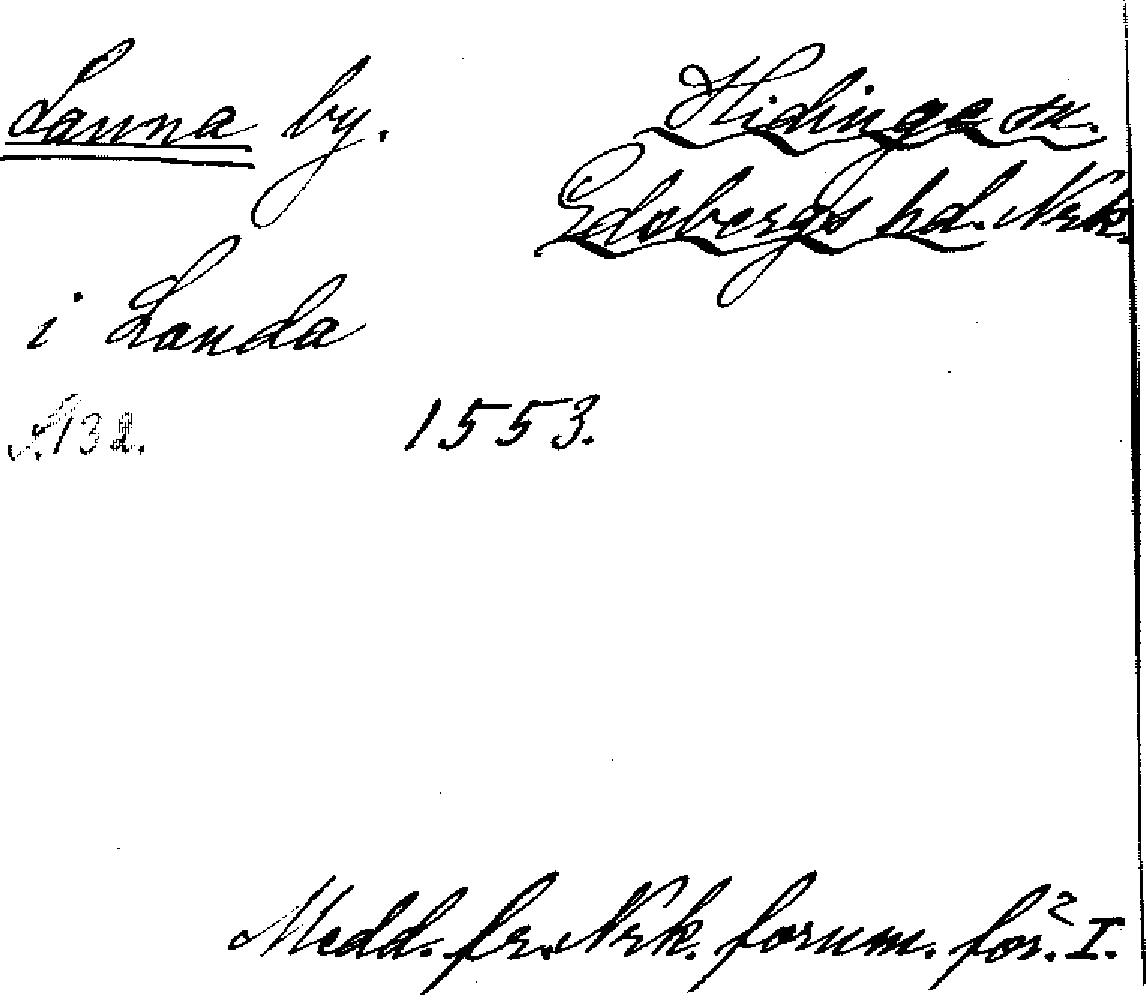 Lanna by. Hidinge sn.
Edsbergs hd. Nrk.
i Landa
s. 132. 1553.
Medd. fr. Nrk. fornm. för. I.